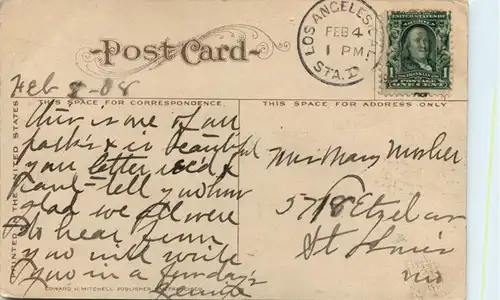 Post Card
LOS ANGELES, CAL.
FEB 4
1 PM
STA. D
UNITED STATES
FRANKLIN
POSTAGE
1 ONE CENT 1
Feb 3-08
THIS SPACE FOR CORRESPONDENCE.
THIS SPACE FOR ADDRESS ONLY
PRINTED IN THE UNITED STATES
This is one of our
park's & is beautiful
your letter rec'd &
can't tell you how
glad we all were
to hear from
you will write
you in a few days
Mrs Mary Mosher
5718 Etzel av
St Louis
Mo
EDWARD H. MITCHELL, PUBLISHER, SAN FRANCISCO.